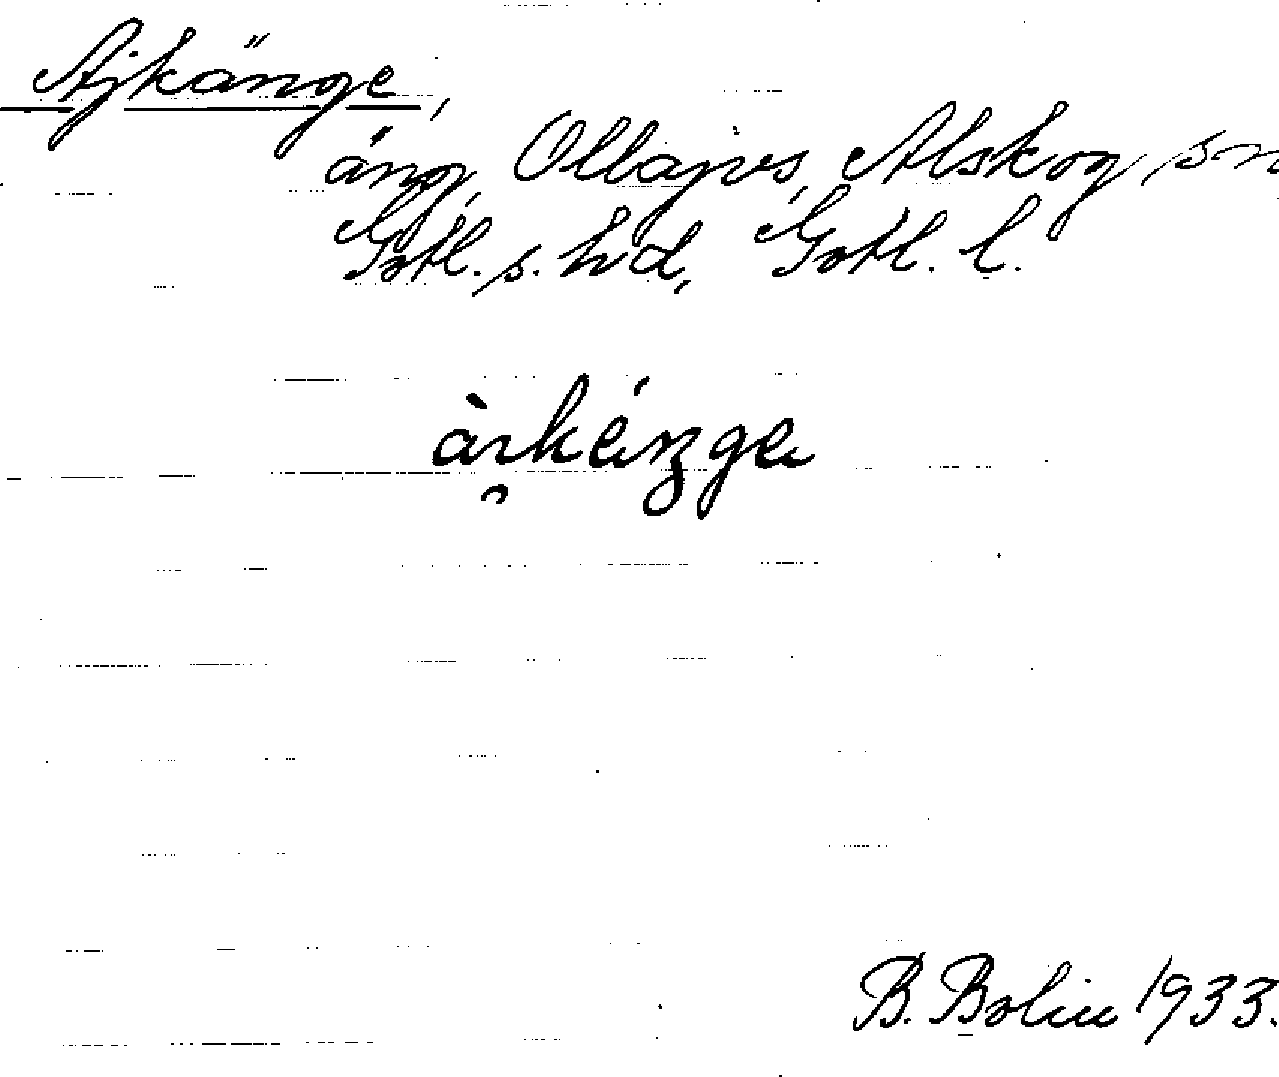 Ajkänge,
äng, Ollajvs, Alskog sn
Gotl. s. hd, Gotl. l.
B. Bolin 1933.